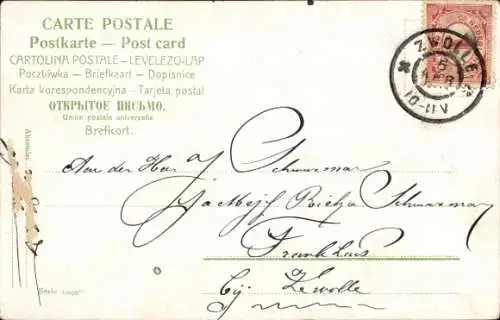 CARTE POSTALE
Postkarte — Post card
CARTOLINA POSTALE – LEVELEZO-LAP
Pocztówka — Briefkaart — Dopisnice
Karta korespondencyjna – Tarjeta postal
ОТКРЫТОЕ ПИСЬМО.
Union postale universelle
Brefkort.
ZWOLLE
5
APR
10-11V
Aan den Heer J Schuurman
p/a Mejf Riekja Schuurman
Frankhuis
bij Zwolle